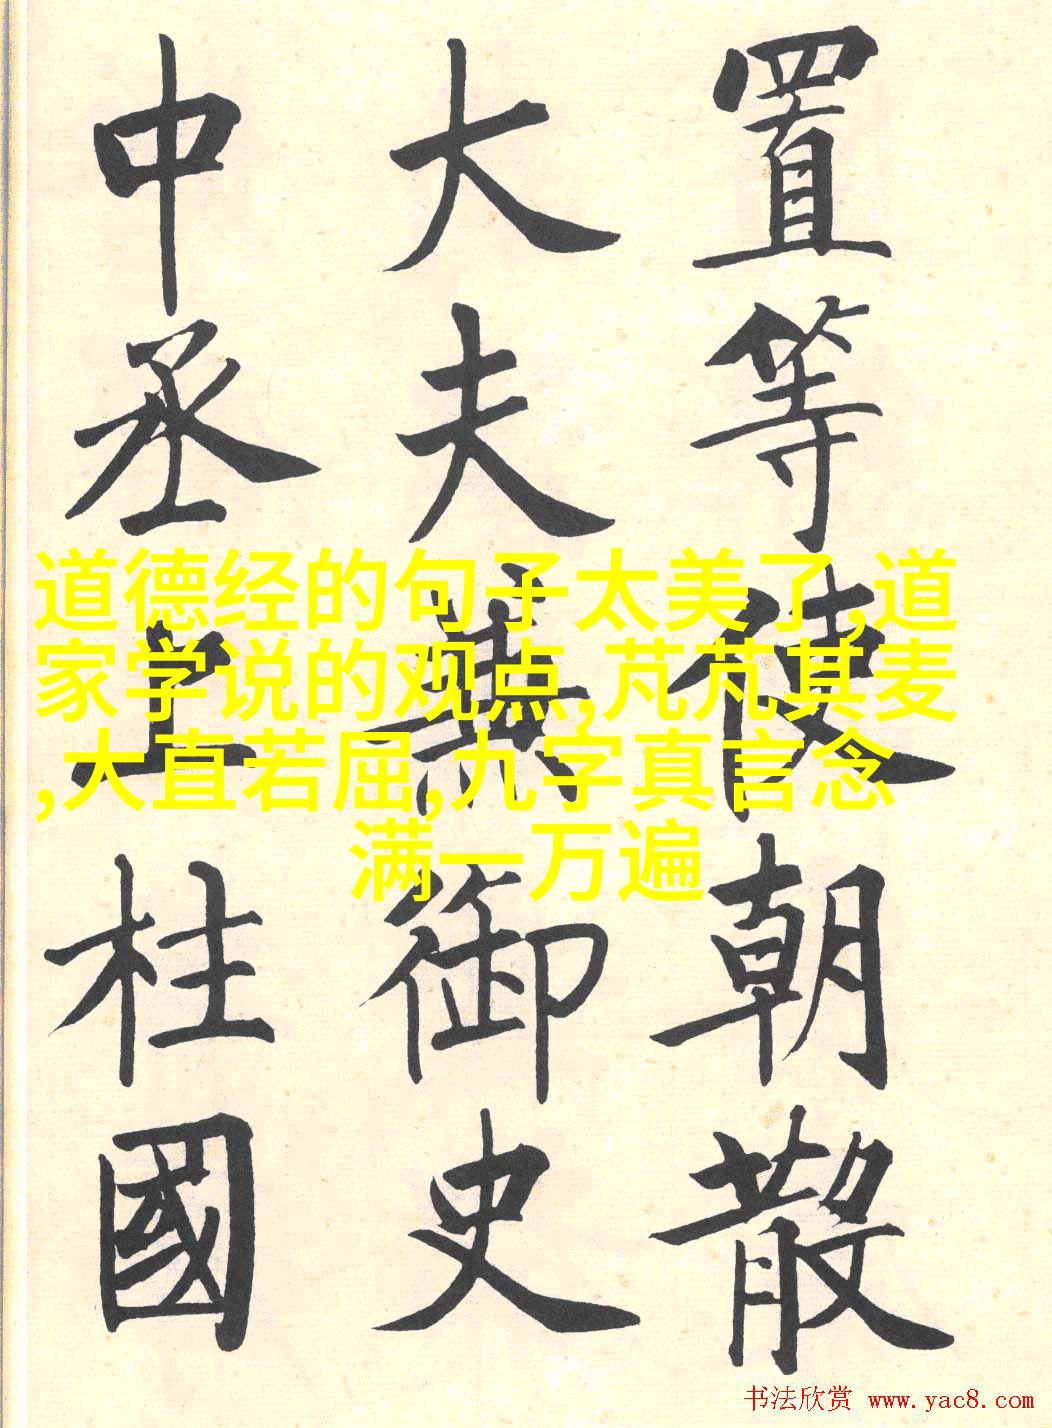 置等使朝散
大夫兼御史
中丞上柱國
道德经的句子太美了,道
家学说的观点,芃芃其麦
,大直若屈,九字真言念
满一万遍
书法欣赏 www.yac8.com